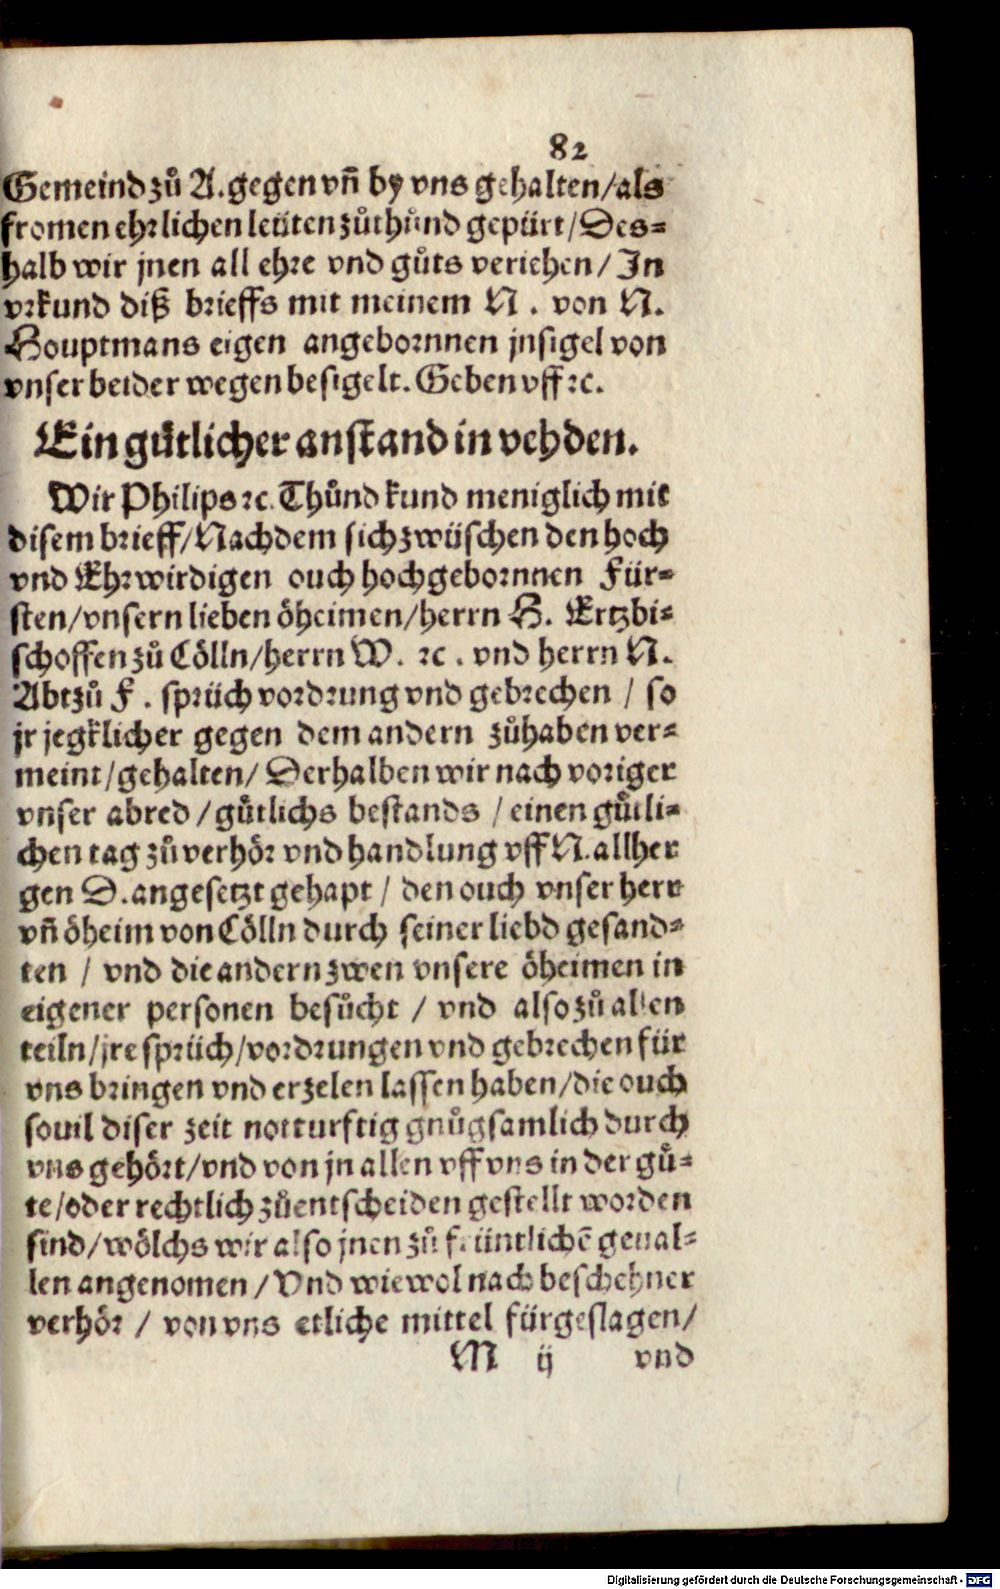 82
Gemeind zů A. gegen vñ by vns gehalten/als
fromen ehrlichen leüten zůthůnd gepürt/Des-
halb wir jnen all ehre vnd gůts veriehen/In
vrkund diß brieffs mit meinem N. von N.
Houptmans eigen angebornnen jnsigel von
vnser beider wegen besigelt. Geben vff ꝛc.
Ein gůtlicher anstand in vehden.
Wir Philips ꝛc. Thůnd kund meniglich mit
disem brieff/Nachdem sich zwüschen den hoch
vnd Ehrwirdigen ouch hochgebornnen Für-
sten/vnsern lieben öheimen/herrn H. Ertzbi-
schoffen zů Cölln/herrn W. ꝛc. vnd herrn N.
Abt zů F. sprüch vordrung vnd gebrechen / so
jr jegklicher gegen dem andern zůhaben ver-
meint/gehalten/ Derhalben wir nach voriger
vnser abred /gůtlichs bestands / einen gůtli-
chen tag zů verhör vnd handlung vff N. allher
gen D. angesetzt gehapt / den ouch vnser herr
vñ öheim von Cölln durch seiner liebd gesand-
ten / vnd die andern zwen vnsere öheimen in
eigener personen besůcht / vnd also zů allen
teiln/jre sprüch/vordrungen vnd gebrechen für
vns bringen vnd erzelen lassen haben/die ouch
souil diser zeit notturftig gnůgsamlich durch
vns gehört/vnd von jn allen vff vns in der gů-
te/oder rechtlich zůentscheiden gestellt worden
sind/wölchs wir also jnen zů früntlichē geual-
len angenomen /Vnd wiewol nach beschehner
verhör / von vns etliche mittel fürgeslagen/
M ij vnd
Digitalisierung gefördert durch die Deutsche Forschungsgemeinschaft - DFG